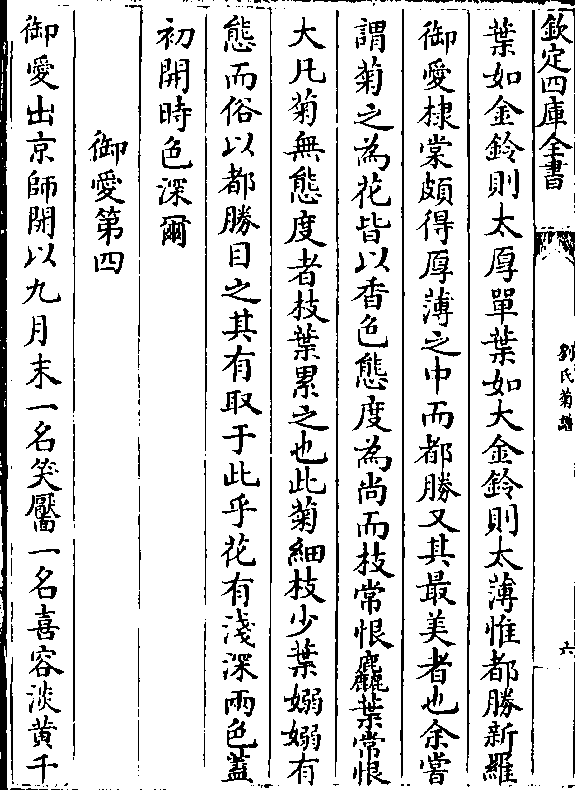 欽定四庫全書
劉氏菊譜
六
葉如金鈴則太厚單葉如大金鈴則太薄惟都勝新羅
御愛棣棠頗得厚薄之中而都勝又其最美者也余嘗
謂菊之為花皆以香色態度為尚而枝常恨麤葉常恨
大凡菊無態度者枝葉累之也此菊細枝少葉嫋嫋有
態而俗以都勝目之其有取于此乎花有淺深兩色蓋
初開時色深爾
御愛第四
御愛出京師開以九月末一名笑靨一名喜容淡黄千